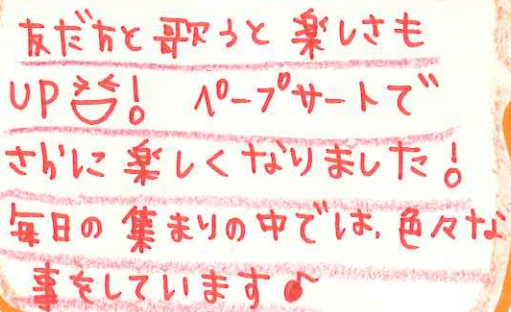 友だちと歌うと楽しさも
UP😆! ペープサートで
さらに楽しくなりました!
毎日の集まりの中では、色々な
事をしています♪